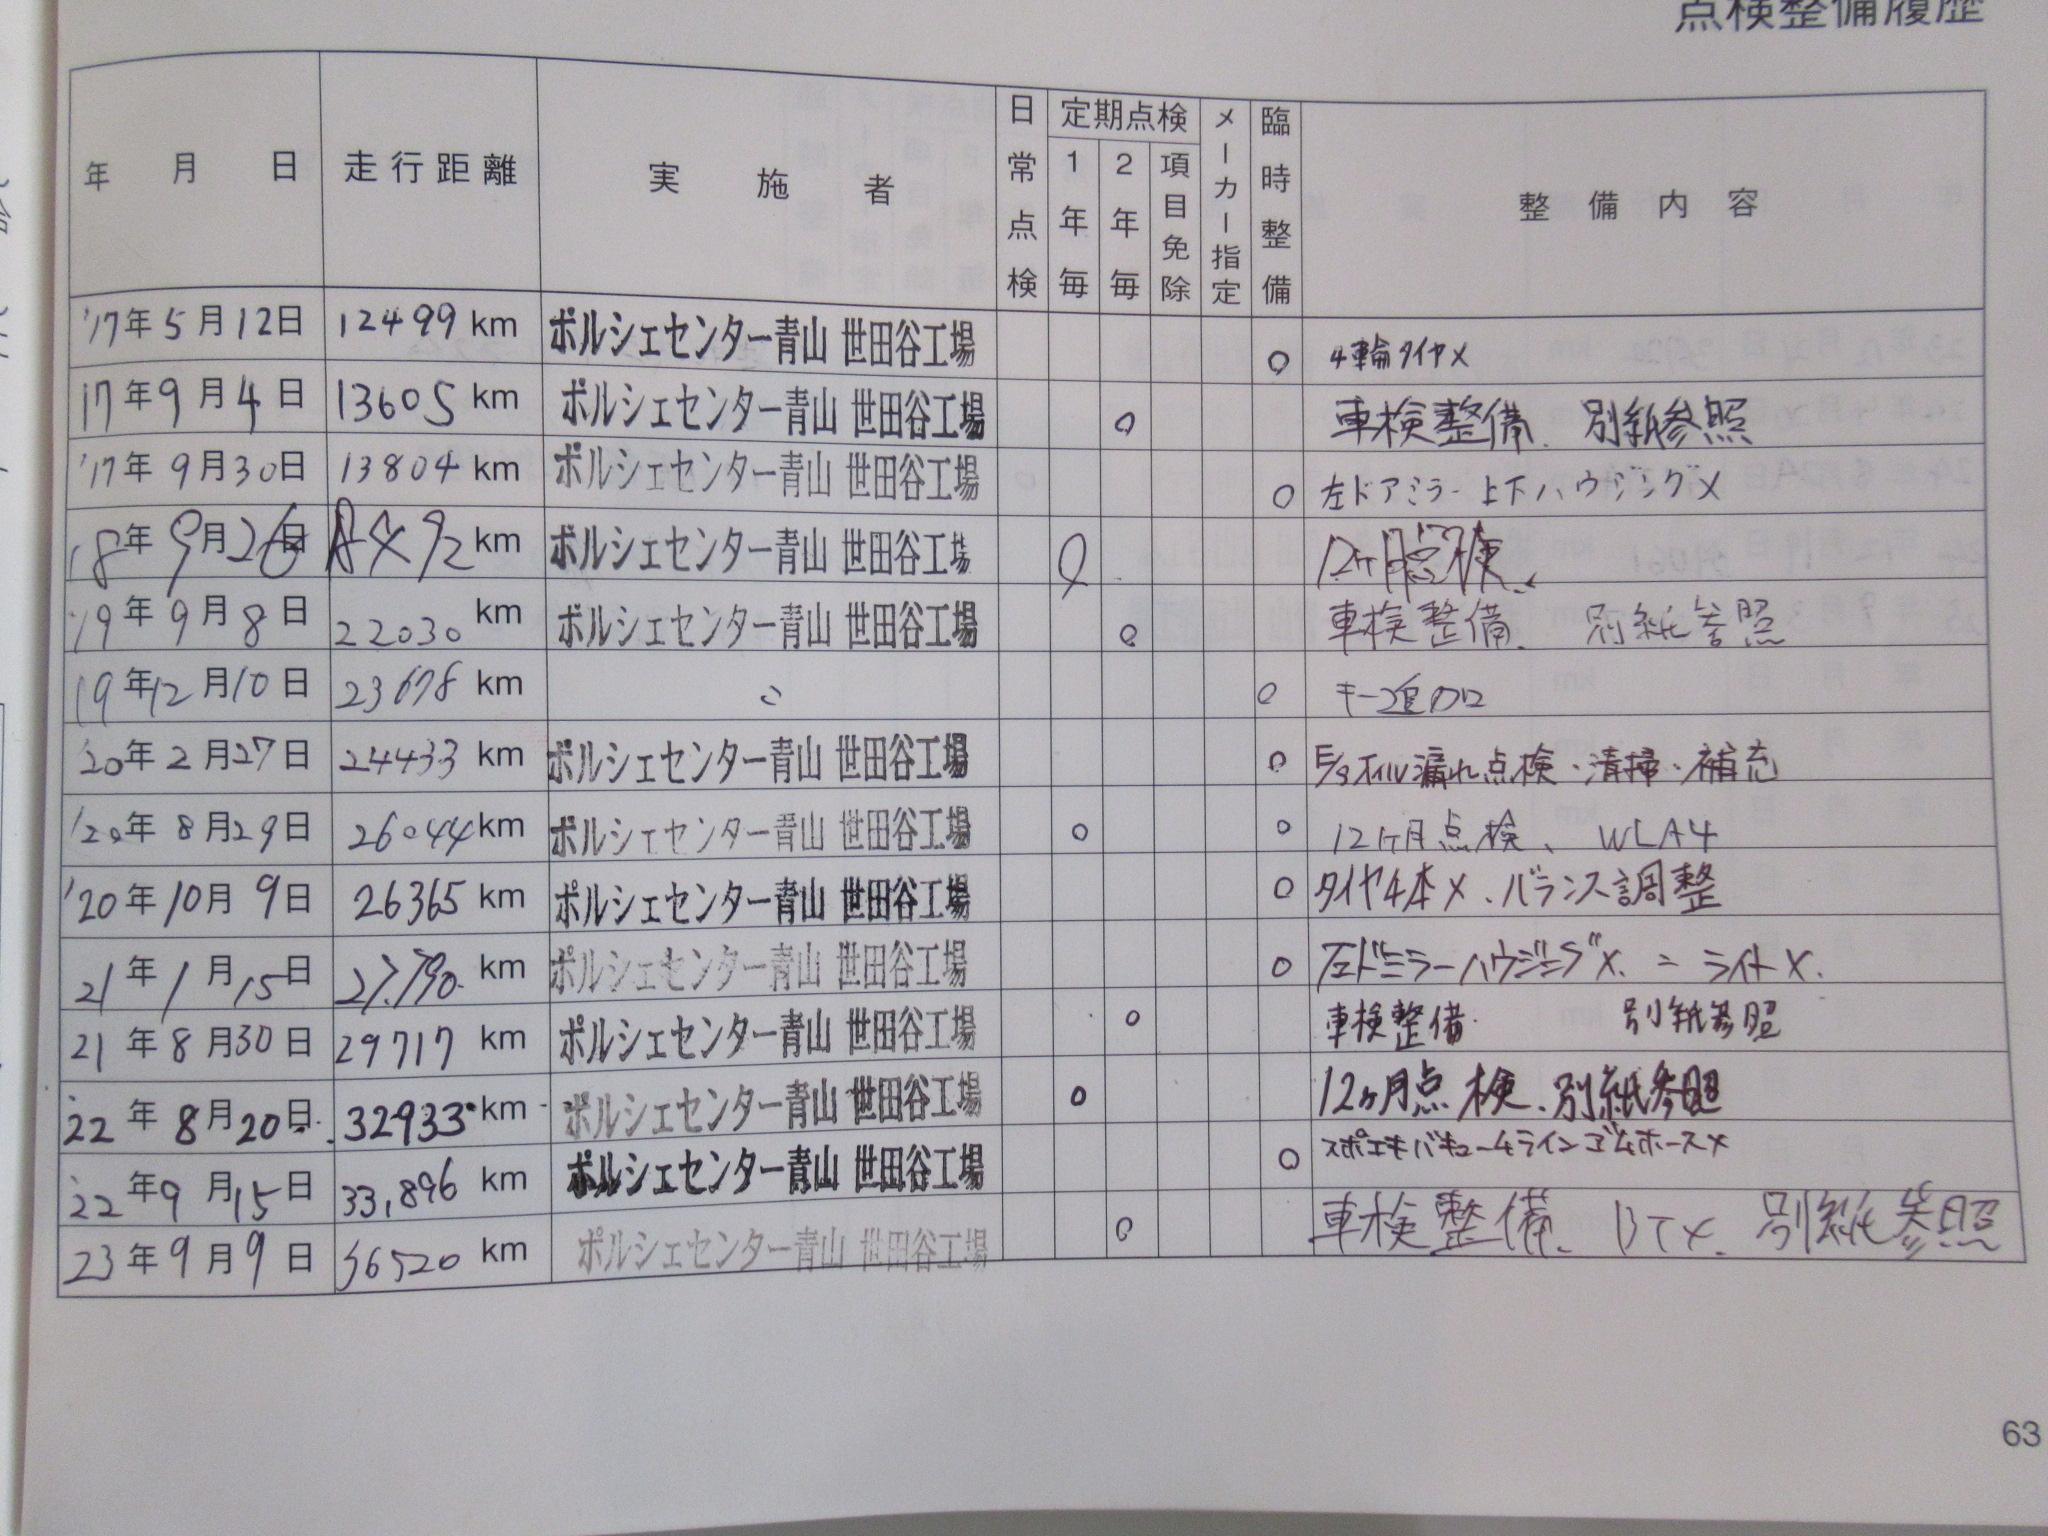 点検整備履歴
年 月 日 走行距離 実施者 日常点検 定期点検 1年毎 2年毎 項目免除 メーカー指定 臨時整備 整備内容
'17年5月12日 12499 km ポルシェセンター青山 世田谷工場 ○ 4輪タイヤ×
17年9月4日 13605 km ポルシェセンター青山 世田谷工場 ○ 車検整備、別紙参照
'17年9月30日 13804 km ポルシェセンター青山 世田谷工場 ○ 左ドアミラー上下ハウジング×
'18年9月26日 km ポルシェセンター青山 世田谷工場 ○ 12ヶ月点検、
'19年9月8日 22030 km ポルシェセンター青山 世田谷工場 ○ 車検整備、別紙参照
19年12月10日 23678 km 〃 ○ キー追加
'20年2月27日 24433 km ポルシェセンター青山 世田谷工場 ○ E/gオイル漏れ点検・清掃・補充
'20年8月29日 26044 km ポルシェセンター青山 世田谷工場 ○ ○ 12ヶ月点検、WLA4
'20年10月9日 26365 km ポルシェセンター青山 世田谷工場 ○ タイヤ4本×、バランス調整
21年1月15日 27,790 km ポルシェセンター青山 世田谷工場 ○ ミラーハウジング×.
21年8月30日 29717 km ポルシェセンター青山 世田谷工場 ○ 車検整備 別紙参照
'22年8月20日 32933 km ポルシェセンター青山 世田谷工場 ○ 12ヶ月点検、別紙参照
'22年9月15日 33,896 km ポルシェセンター青山 世田谷工場 ○ スポエキバキュームラインゴムホース×
23年9月9日 36520 km ポルシェセンター青山 世田谷工場 ○ 車検整備、別紙参照
63